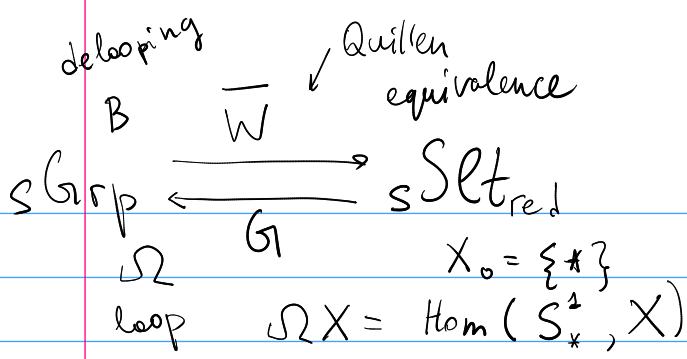 delooping
Quillen
equivalence
B
W̅
sGrp ⟶ sSet_red
⟵
G
X₀ = {*}
Ω
loop
ΩX = Hom(S¹_*, X)